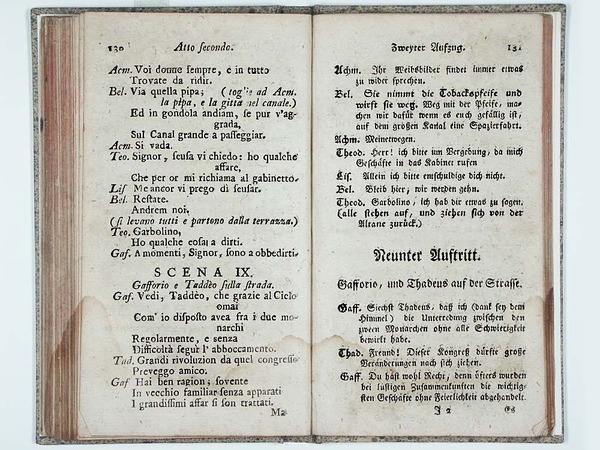 130 Atto secondo.
Acm. Voi donne sempre, e in tutto
Trovate da ridir.
Bel. Via quella pipa; (toglie ad Acm.
la pipa, e la gitta nel canale.)
Ed in gondola andiam, se pur v'ag-
grada,
Sul Canal grande a passeggiar.
Acm. Si vada.
Teo. Signor, scusa vi chiedo: ho qualche
affare,
Che per or mi richiama al gabinetto.
Lis Me ancor vi prego di scusar.
Bel. Restate.
Andrem noi.
(si levano tutti e partono dalla terrazza.)
Teo. Garbolino,
Ho qualche cosa a dirti.
Gaf. A momenti, Signor, sono a obbedirti.
SCENA IX.
Gafforio e Taddèo sulla strada.
Gaf. Vedi, Taddèo, che grazie al Cielo
omai
Com' io disposto avea fra i due mo-
narchi
Regolarmente, e senza
Difficoltà seguì l' abboccamento.
Tad. Grandi rivoluzion da quel congresso
Preveggo amico.
Gaf Hai ben ragion; sovente
In vecchio familiar senza apparati
I grandissimi affar si son trattati.
Ma
Zweyter Aufzug. 131
Achm. Ihr Weibsbilder findet immer etwas
zu wider sprechen.
Bel. Sie nimmt die Tobackspfeife und
wirft sie weg. Weg mit der Pfeife, ma-
chen wir dafür wenn es euch gefällig ist,
auf dem großen Kanal eine Spazierfahrt.
Achm. Meinetwegen.
Theod. Herr! ich bitte um Vergebung, da mich
Geschäfte in das Kabinet rufen
Lis. Allein ich bitte entschuldige dich nicht.
Bel. Bleib hier; wir werden gehn.
Theod. Garbolino, ich hab dir etwas zu sagen.
(alle stehen auf, und ziehen sich von der
Altane zurück.)
Neunter Auftritt.
Gafforio, und Thadeus auf der Strasse.
Gaff. Siehst Thadeus, daß ich (dank sey dem
Himmel) die Unterredung zwischen den
zween Monarchen ohne alle Schwierigkeit
bewirkt habe.
Thad. Freund! Dieser Kongreß dürfte große
Veränderungen nach sich ziehen.
Gaff. Du hast wohl Recht, denn öfters wurden
bei lustigen Zusammenkunften die wichtig-
sten Geschäfte ohne Feierlichkeit abgehandelt.
J 2 Es